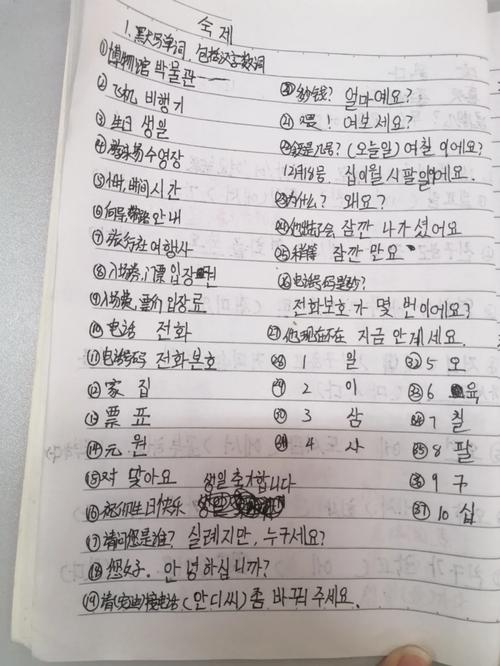 숙제
1.默写单词,包括汉字数词
①博物馆 박물관
② 飞机 비행기
③ 生日 생일
④ 수영장
⑤ 时间 시간
⑥ 向导, 안내
⑦ 旅行社 여행사
⑧ 入场券,门票 입장권
⑨ 入场费,票价 입장료
⑩ 电话 전화
⑪ 电话号码 전화번호
⑫ 家 집
⑬ 票 표
⑭ 元 원
⑮ 对 맞아요
생일 축가합니다
⑯ 祝你生日快乐
⑰ 请问您是谁? 실례지만, 누구세요?
⑱ 您好. 안녕하십니까?
⑲ 请(安迪)接电话 (안디씨) 좀 바꿔 주세요.
⑳ 多少钱? 얼마예요?
㉑ 喂! 여보세요?
㉒ 是几号? (오늘일) 여칠이에요?
12月18号 십이월 시팔일에요.
㉓ 为什么? 왜요?
㉔ 잠깐 나가셨어요
㉕ 稍等 잠깐 만요
㉖ 电话号码是多少?
전화보호가 몇 번이에요?
㉗ 他现在不在 지금 안 계세요.
㉘ 1 일
㉙ 2 이
㉚ 3 삼
㉛ 4 사
㉜ 5 오
㉝ 6 육
㉞ 7 칠
㉟ 8 팔
㊱ 9 구
㊲ 10 십